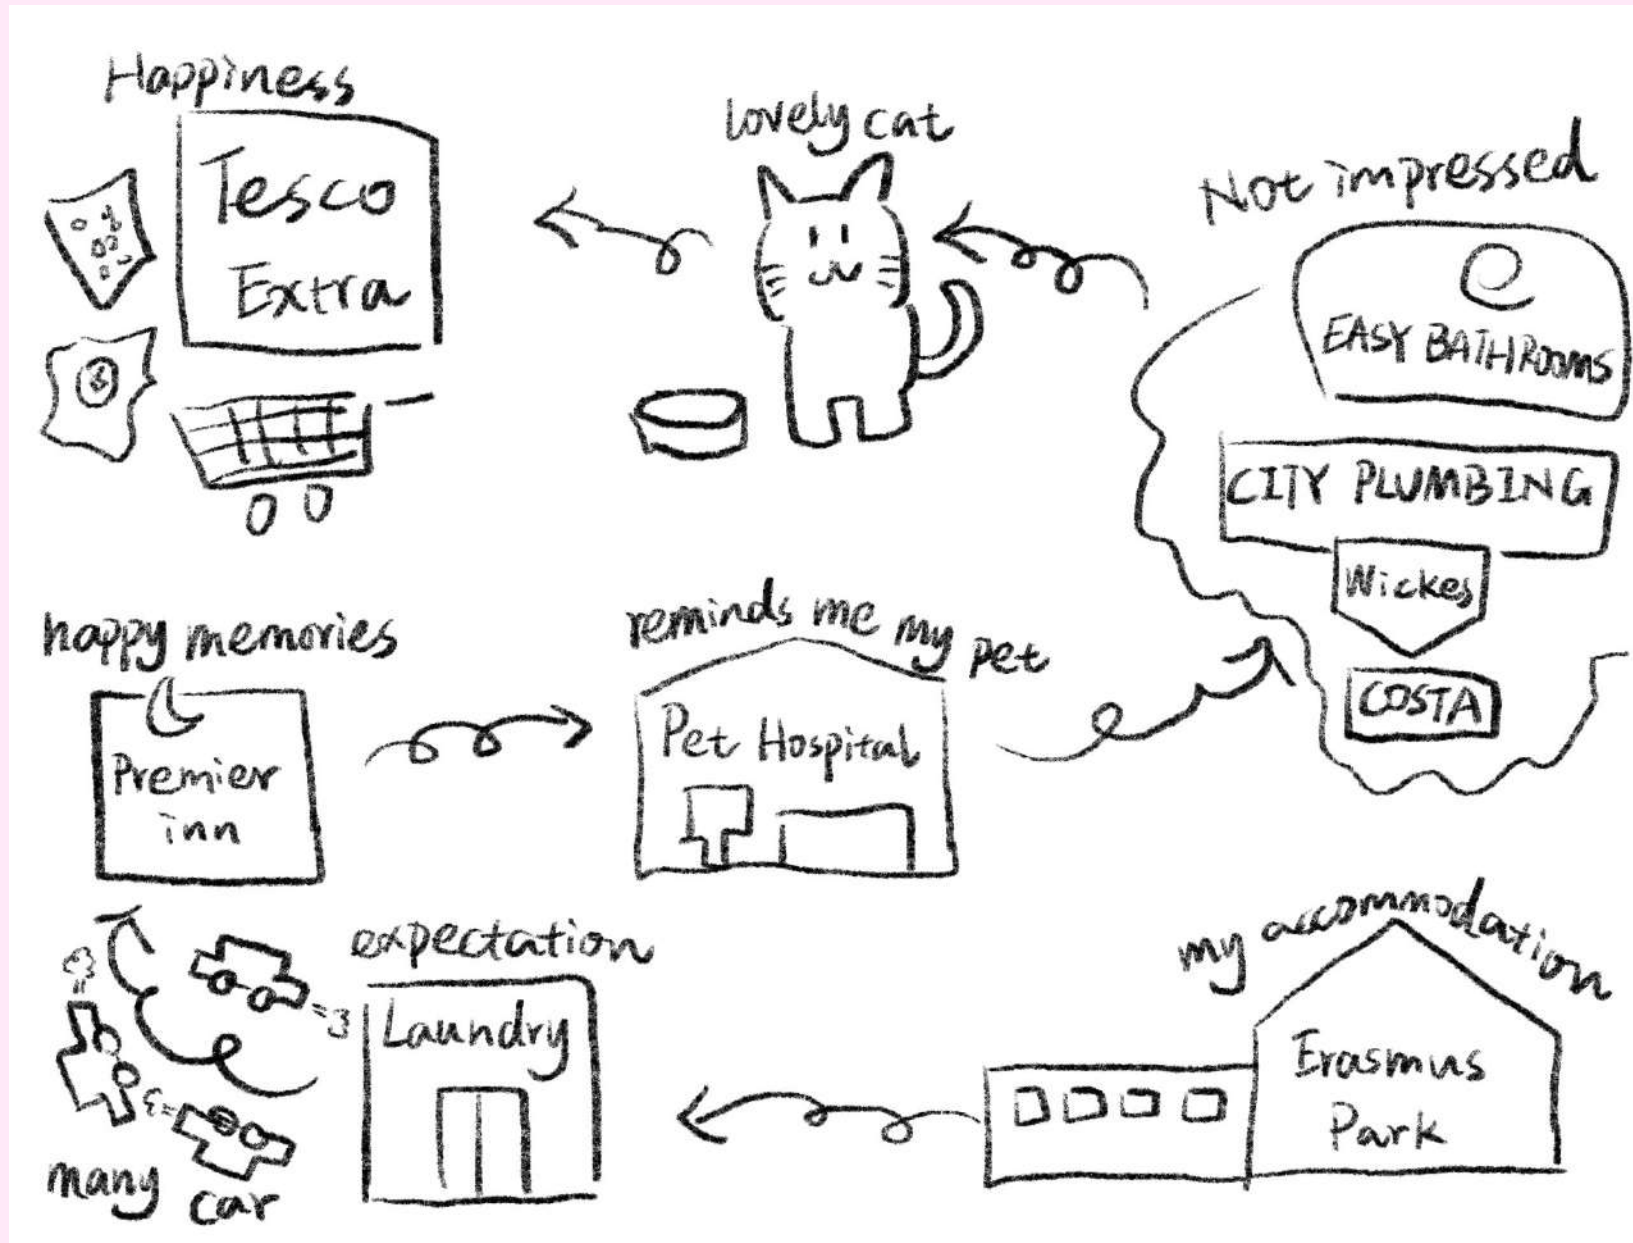 Happiness
Tesco
Extra
lovely cat
Not impressed
EASY BATHROOMS
CITY PLUMBING
Wickes
COSTA
happy memories
Premier
inn
reminds me my pet
Pet Hospital
expectation
Laundry
many car
my accommodation
Erasmus
Park